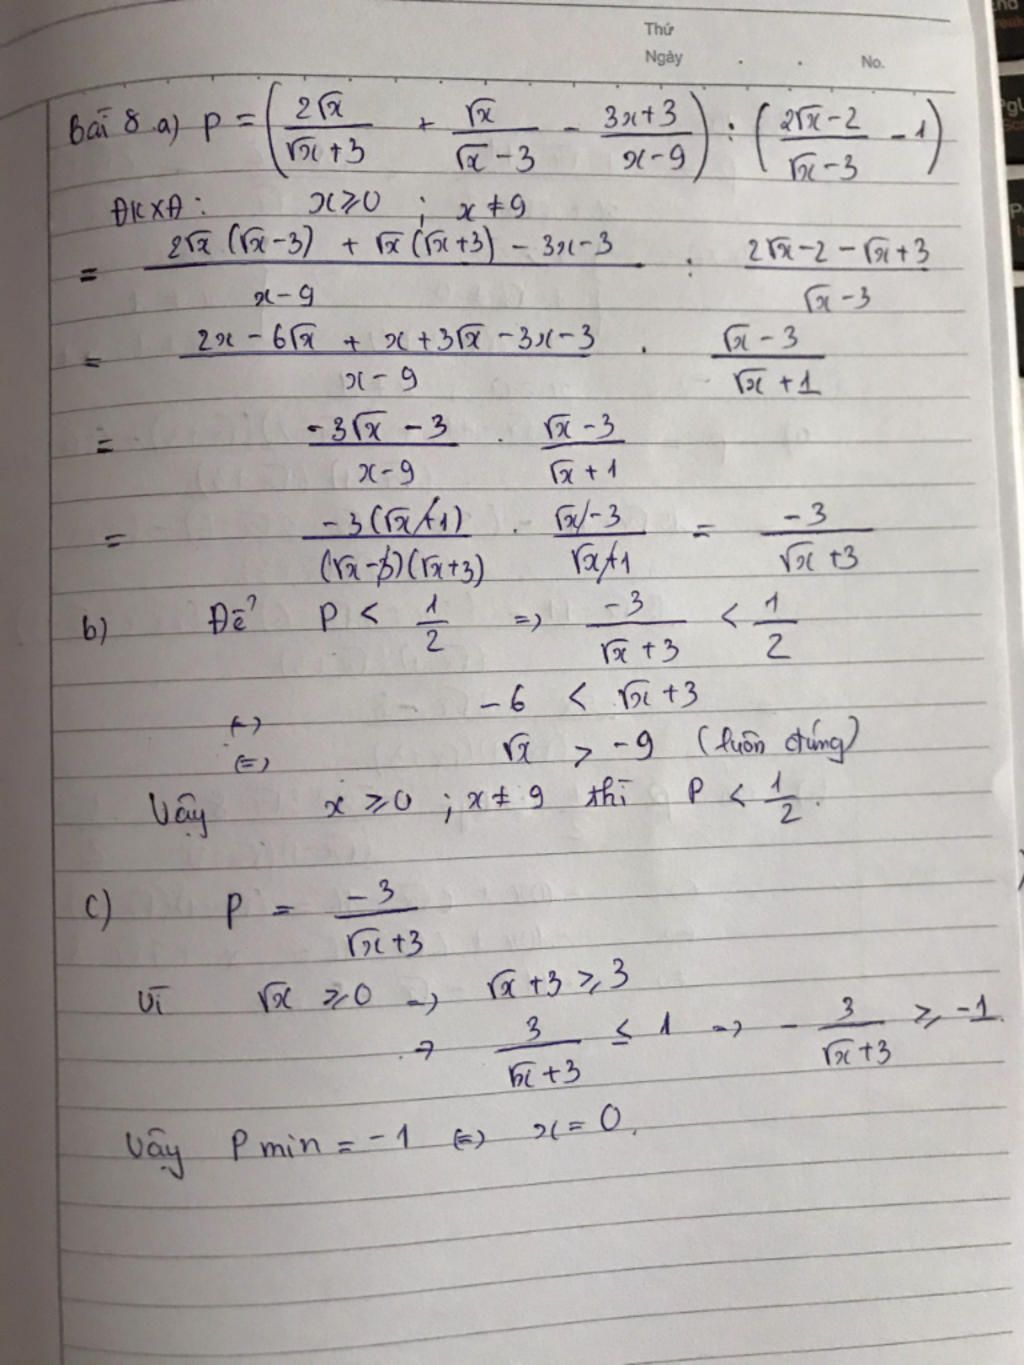 Thứ
Ngày . . No.
Bài 8.a) P = (2√x/(√x+3) + √x/(√x-3) - (3x+3)/(x-9)) : ((2√x-2)/(√x-3) - 1)
ĐKXĐ: x≥0 ; x≠9
= (2√x(√x-3) + √x(√x+3) - 3x-3)/(x-9) : (2√x-2-√x+3)/(√x-3)
= (2x-6√x + x+3√x-3x-3)/(x-9) . (√x-3)/(√x+1)
= (-3√x-3)/(x-9) . (√x-3)/(√x+1)
= (-3(√x+1))/((√x-3)(√x+3)) . (√x-3)/(√x+1) = -3/(√x+3)
b) Để P < 1/2 => -3/(√x+3) < 1/2
(-) -6 < √x+3
(=) √x > -9 (luôn đúng)
Vậy x≥0 ; x≠9 thì P < 1/2.
c) P = -3/(√x+3)
Vì √x ≥0 -> √x+3≥3
-> 3/(√x+3) ≤ 1 -> -3/(√x+3) ≥ -1.
Vậy P min = -1 (=) x=0.